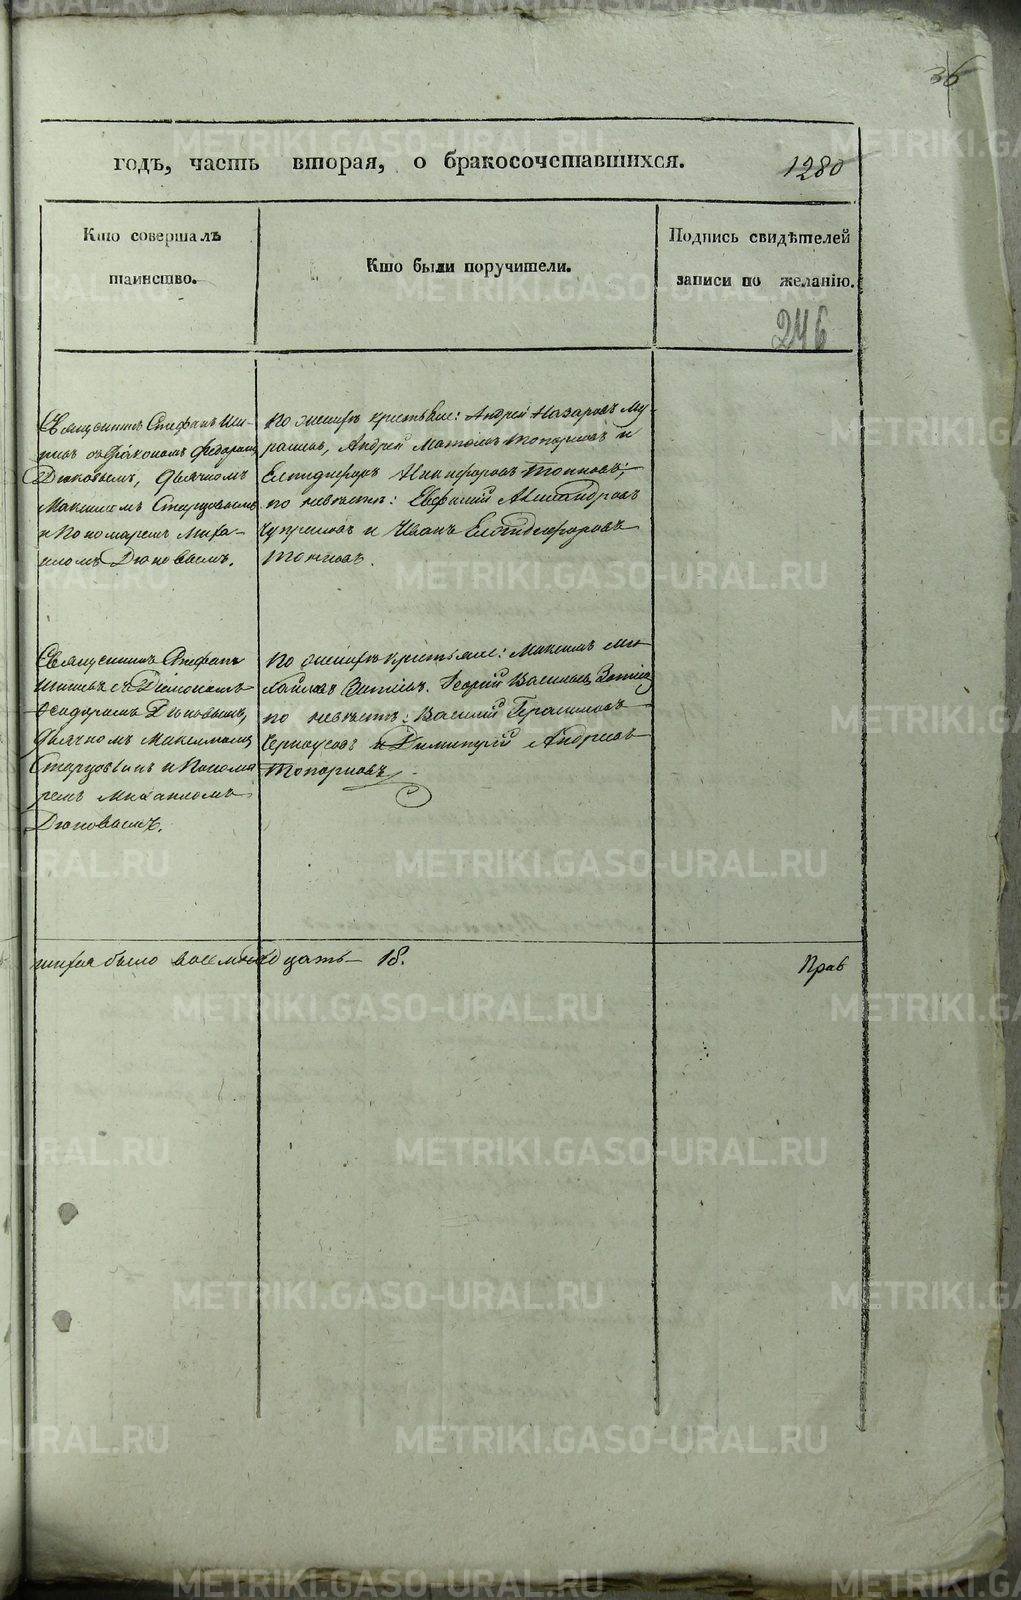 36
годъ, часть вторая, о бракосочетавшихся.
1280
Кто совершалъ
таинство.
Кто были поручители.
Подпись свидѣтелей
записи по желанію.
246
Священникъ Стефанъ
съ Діакономъ Федоромъ
Дюковымъ, Дьячкомъ
Максимомъ Старцовымъ
и Пономаремъ Миха-
иломъ Дюковымъ.
По женихѣ крестьяне: Андрей Назаровъ Му-
Андрей Топорковъ и
Елпидифоръ Никифоровъ
по невѣстѣ: Евфимій Александровъ
и Иванъ Елпидифоровъ
Священникъ Стефанъ
съ Діакономъ
Феодоромъ Дюковымъ,
Дьячкомъ Максимомъ
Старцовымъ и Понома
ремъ Михаиломъ
Дюковымъ.
По женихѣ крестьяне: Максимъ Ми-
хайловъ Георгій Васильевъ
по невѣстѣ: Василій Герасимовъ
Черноусовъ и Димитрій Андреевъ
Топорковъ
было восемнадцать 18.
Прав
METRIKI.GASO-URAL.RU